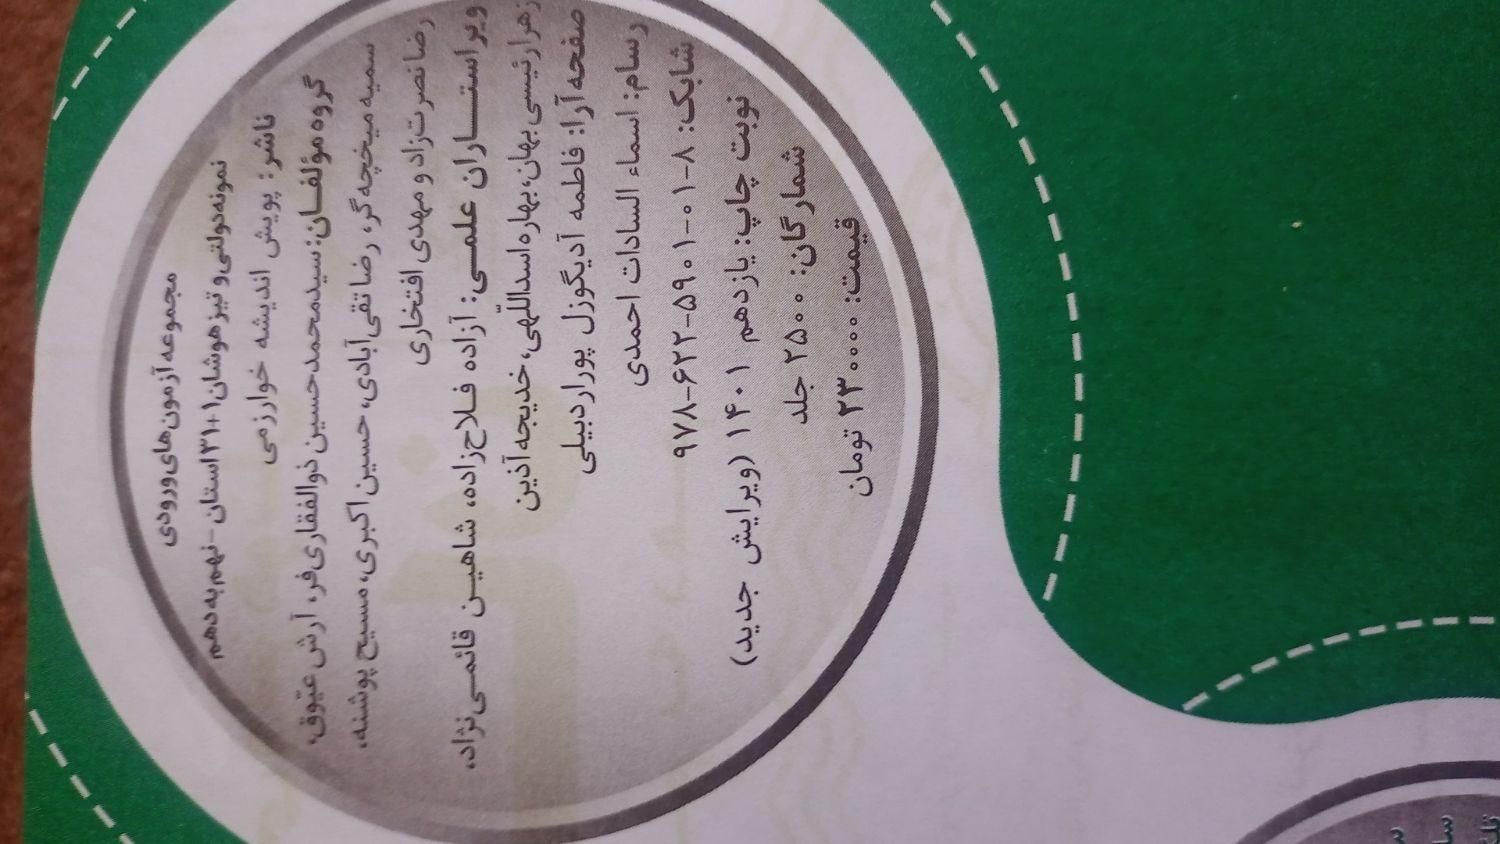 مجموعه آزمون‌های ورودی
نمونه‌دولتی و تیزهوشان ۱+۳۱ استان - نهم به دهم
ناشر: پویش اندیشه خوارزمی
گروه مؤلفان: سیدمحمدحسین ذوالفقاری‌فر، آرش عیّوق،
سمیه میخچه‌گر، رضا تقی‌آبادی، حسین اکبری، مسیح پوشنه،
رضا نصرت‌زاد و مهدی افتخاری
ویراستاران علمی: آزاده فلاح‌زاده، شاهین قائمی‌نژاد،
زهرا رئیسی بهان، بهاره اسداللّهی، خدیجه آذین
صفحه‌آرا: فاطمه آدیگوزل پوراردبیلی
رسام: اسماء السادات احمدی
شابک: ۸-۰۱-۵۹۰۱-۶۲۲-۹۷۸
نوبت چاپ: یازدهم ۱۴۰۱ (ویرایش جدید)
شمارگان: ۲۵۰۰ جلد
قیمت: ۲۳۰۰۰۰ تومان